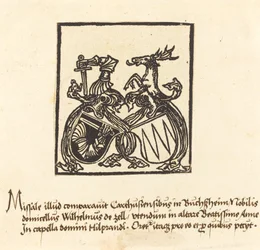 Missale illud comparavit Carthusiensibus in Buchsheim Nobilis
domicellus Wilhelmus de Zell. utendum in altari Beatissime Anne
In capella domini Hilprandi. Oretis itaque pro eo et pro quibus petiit.